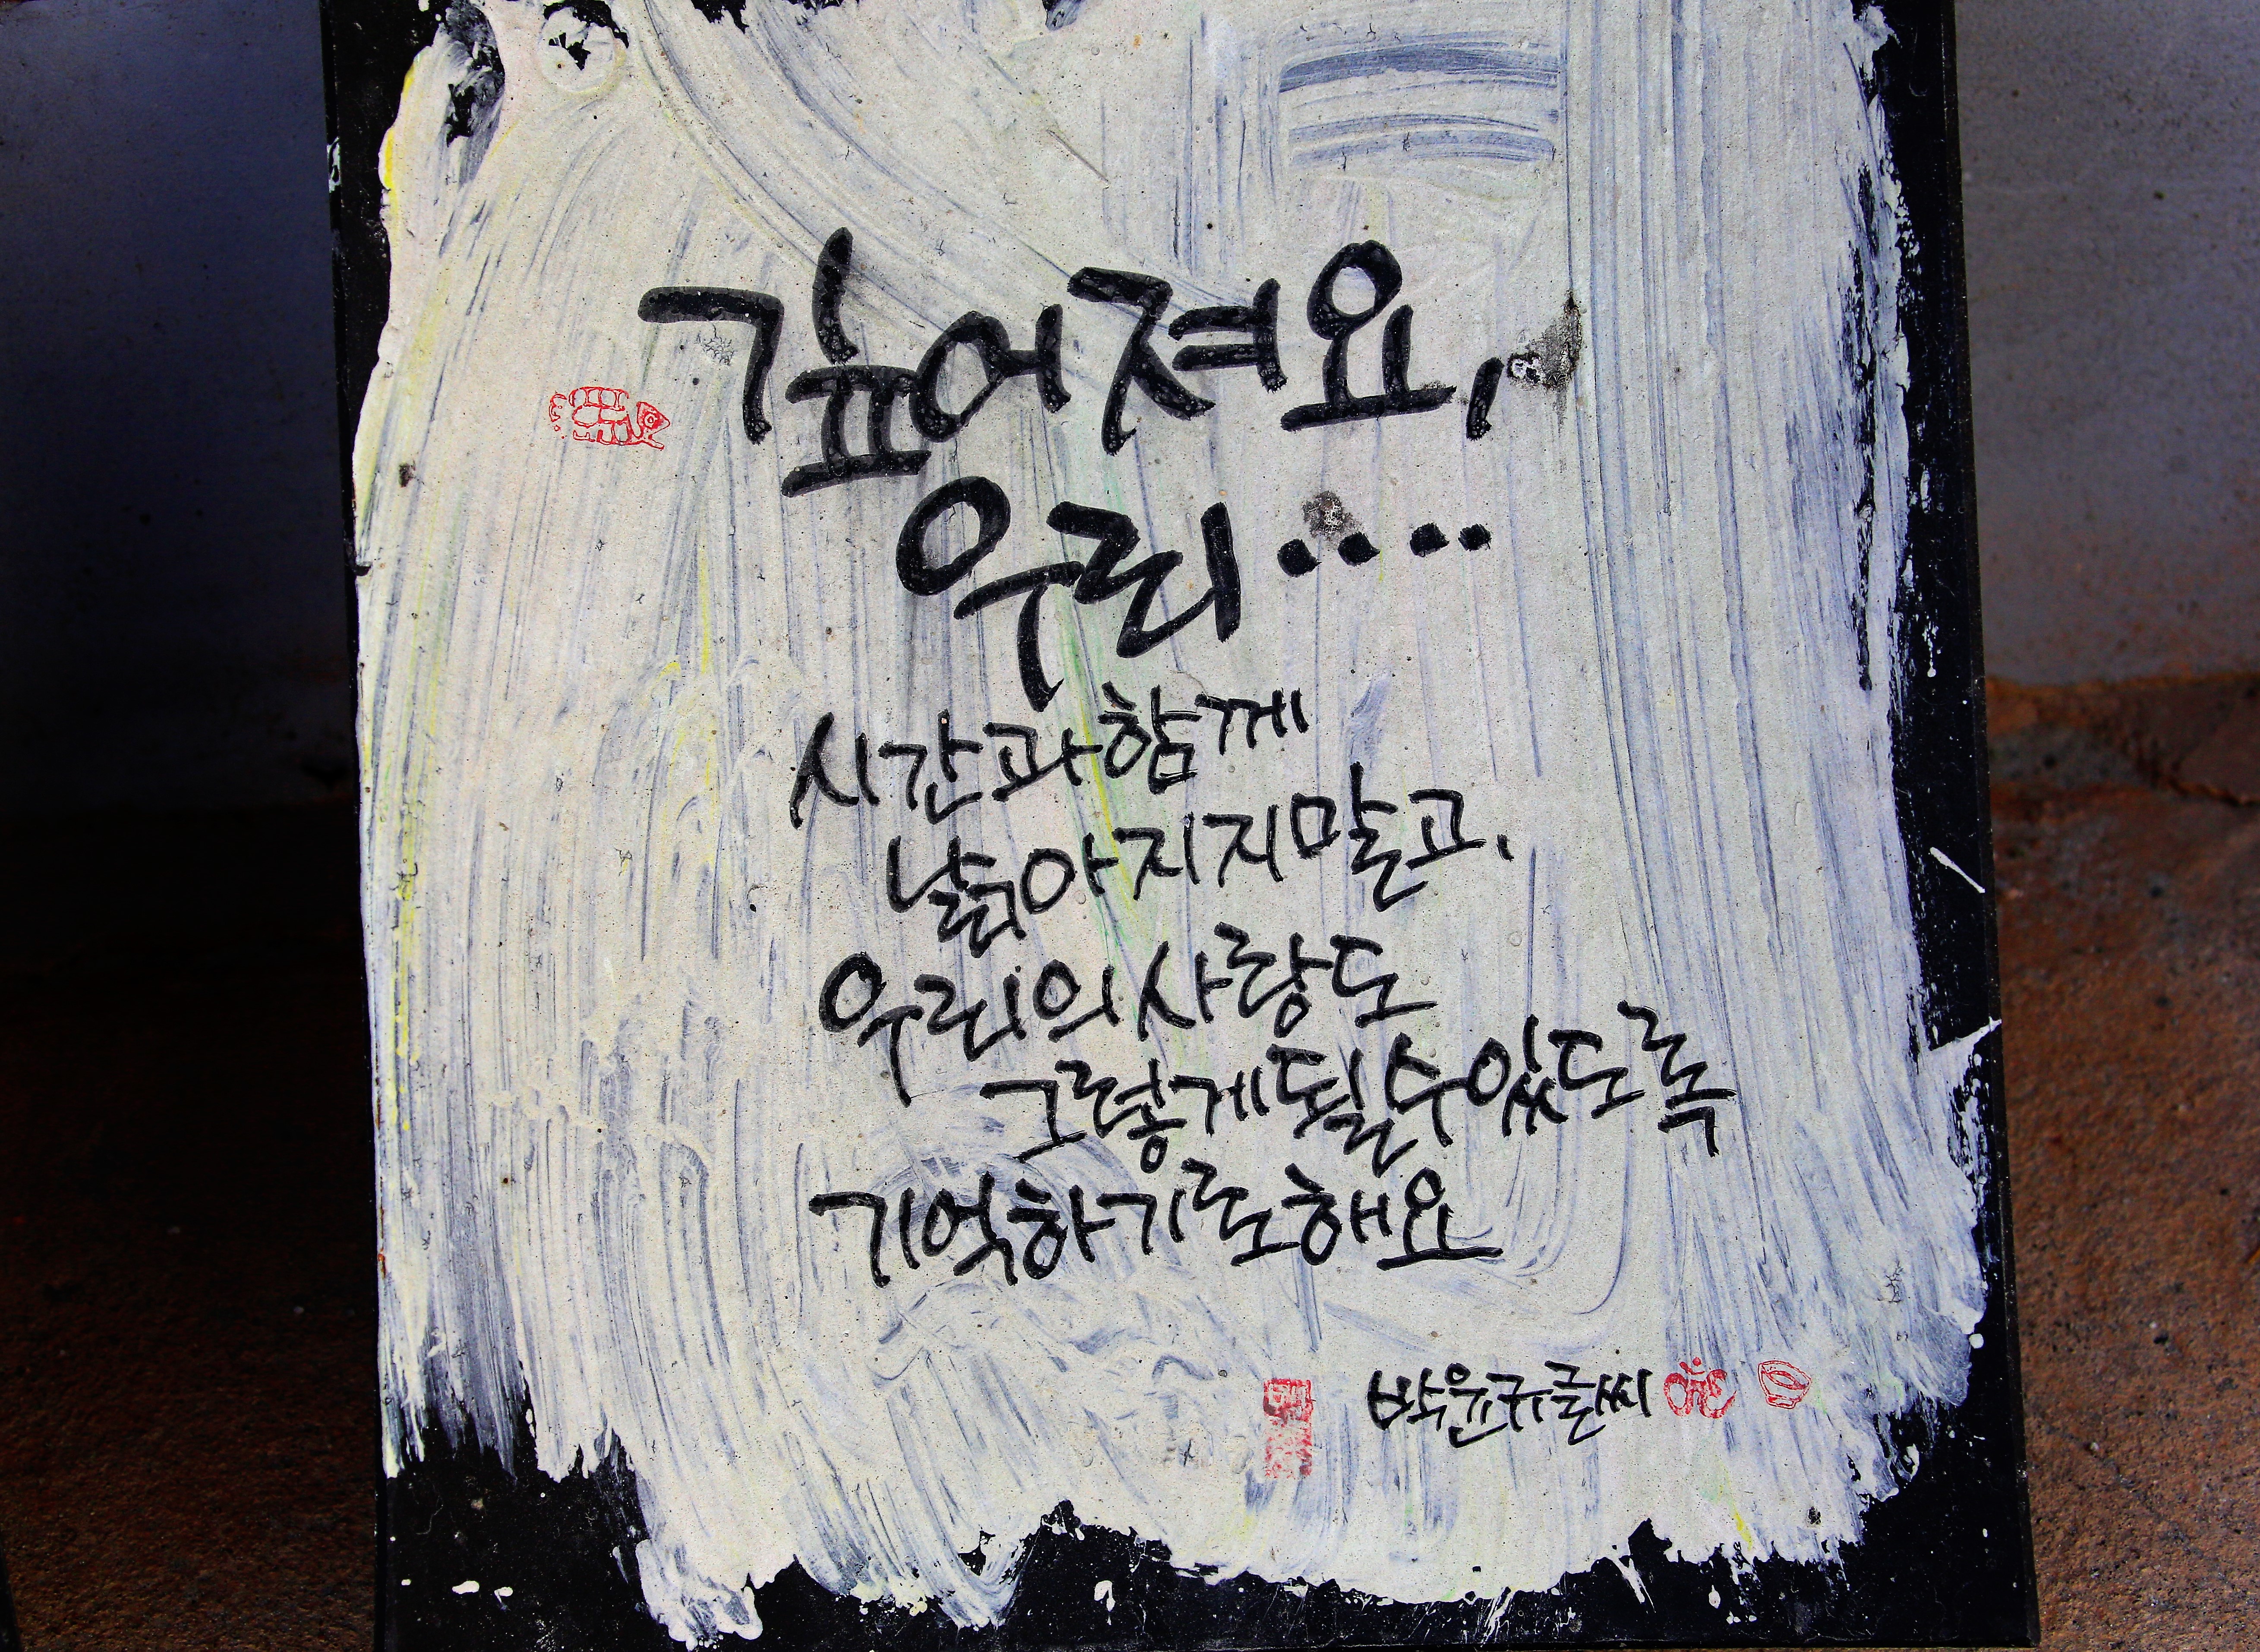 깊어져요,
우리....
시간과함께
낡아지지말고.
우리의사랑도
그렇게될수있도록
기억하기로해요
박윤규글씨